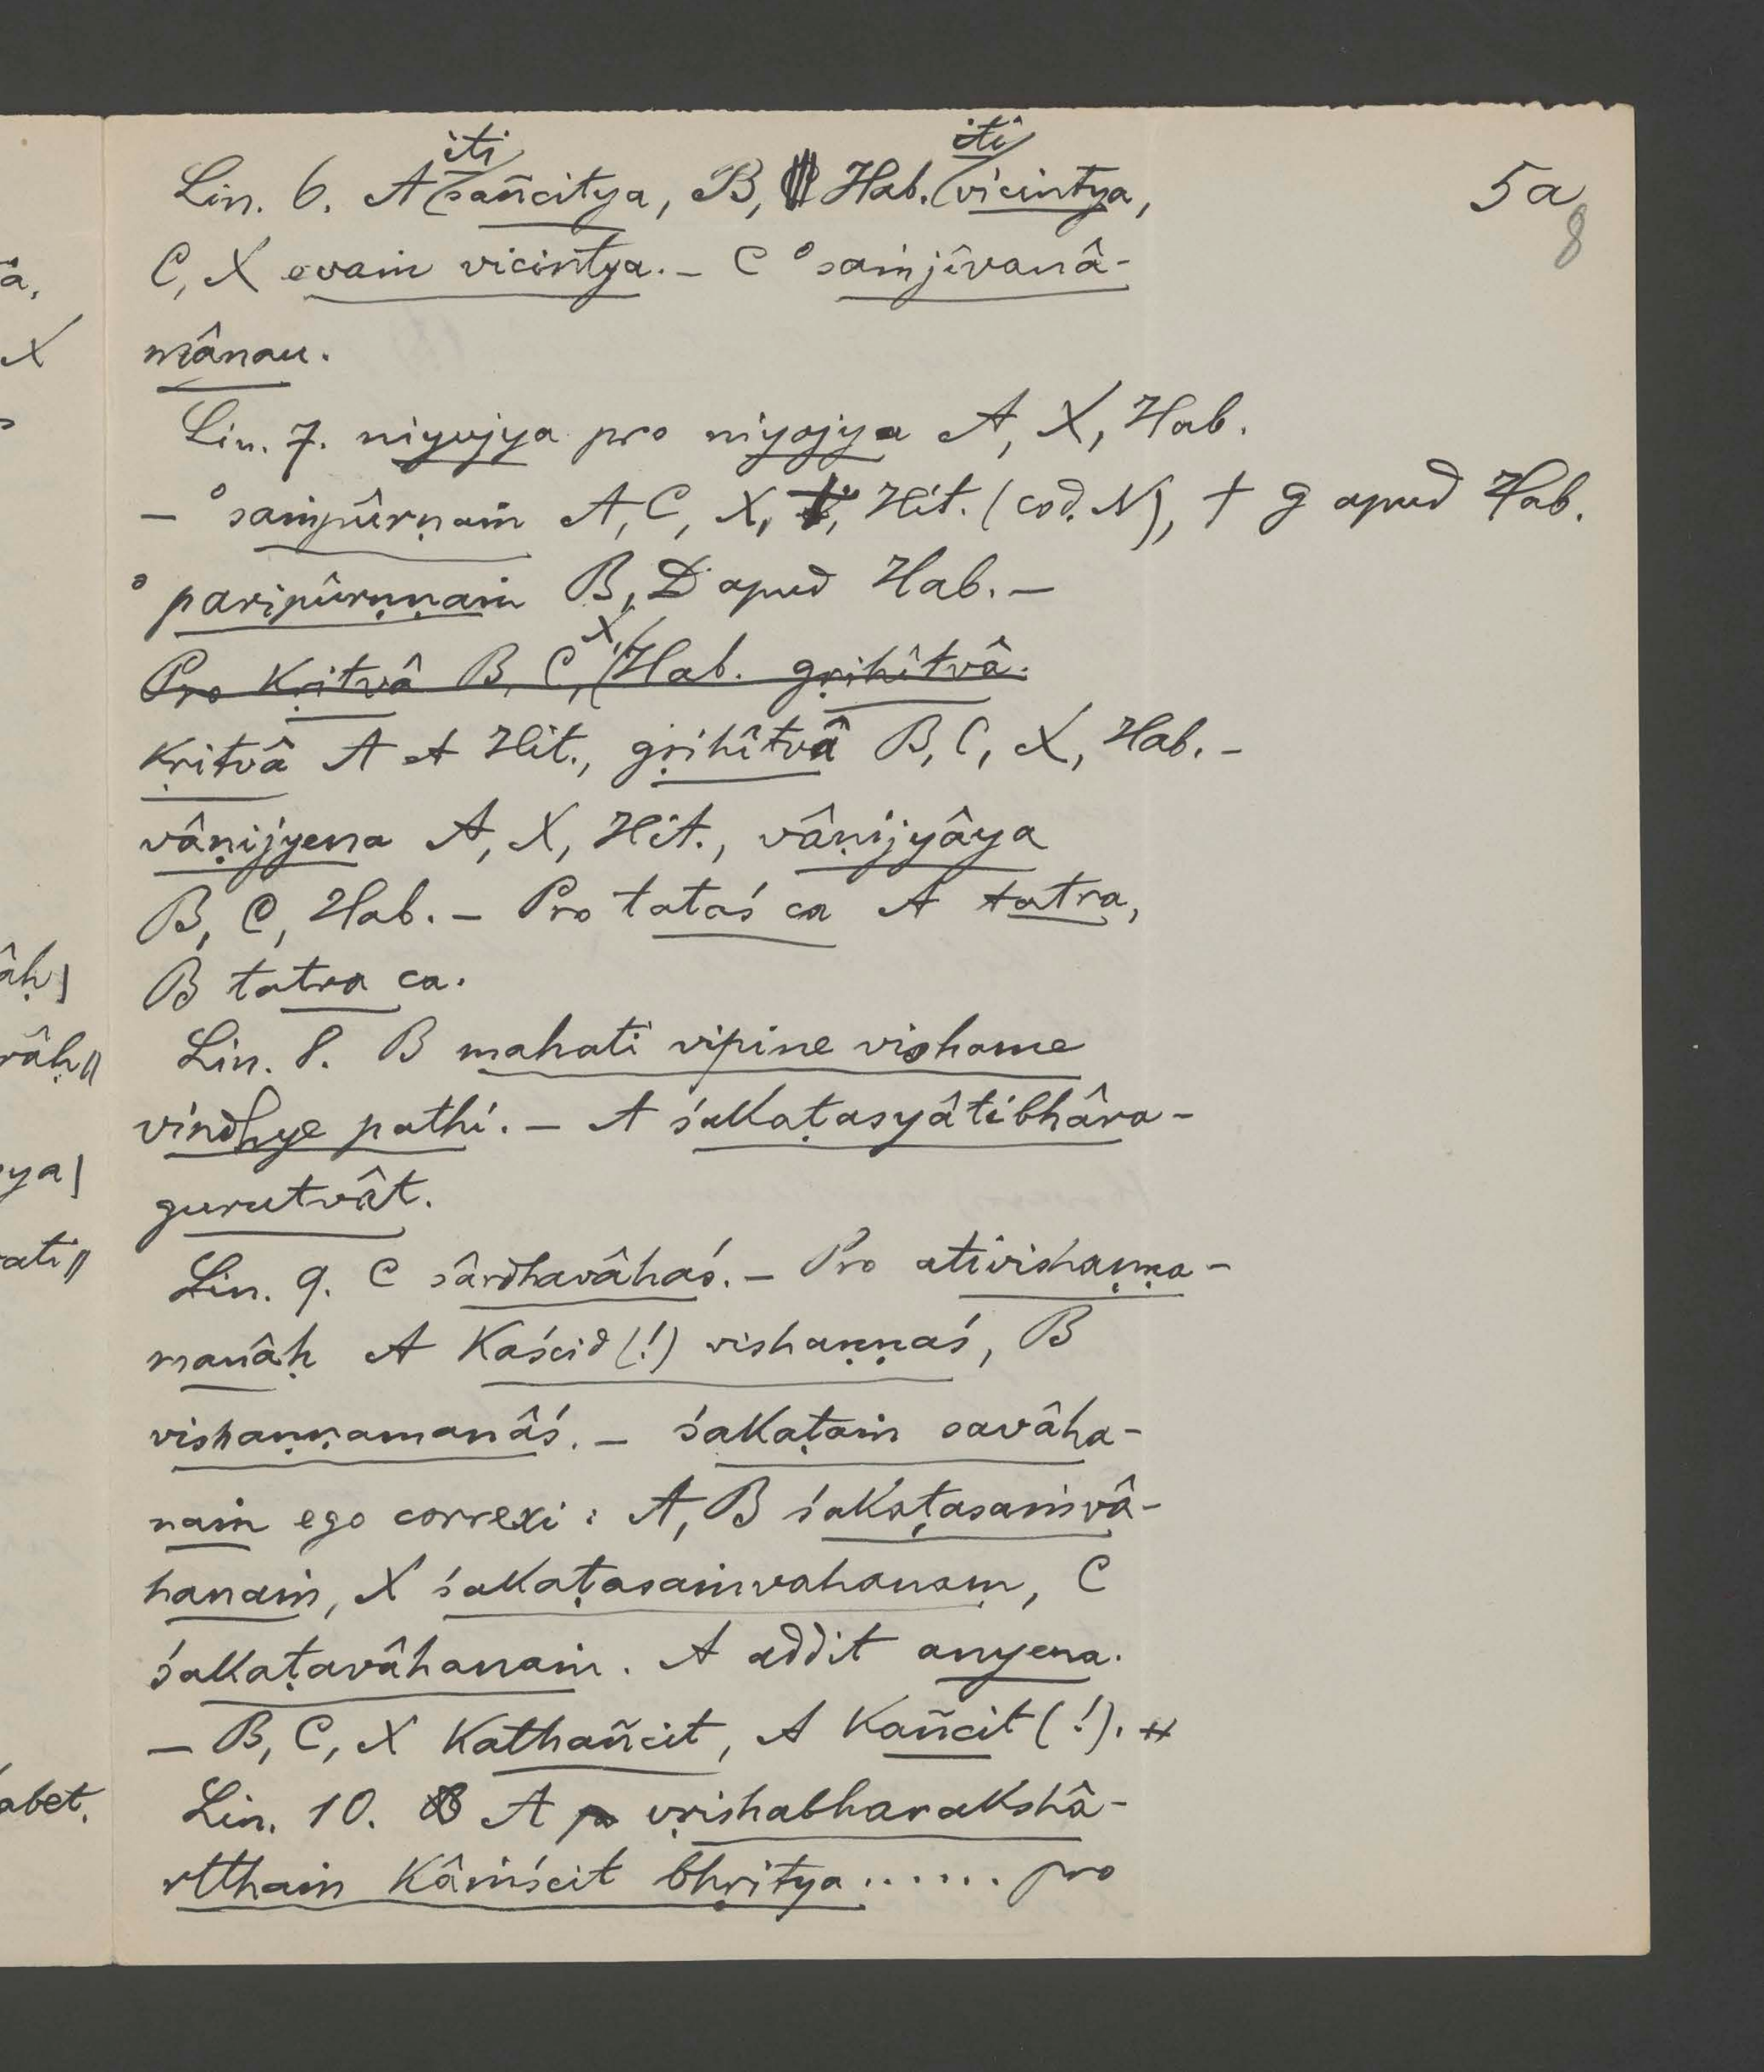 5a
8
Lin. 6. A iti sañcitya, B, Hab. iti vicintya,
C, X evaṁ vicintya. – C °saṁjîvanâ-
mânau.
Lin. 7. niyujya pro niyojya A, X, Hab.
– °saṁpûrṇaṁ A, C, X, Hit. (cod. N), † g apud Hab.
°paripûrṇṇaṁ B, D apud Hab. –
Pro kṛitvâ B, C, X, Hab. gṛihîtvâ.
kṛitvâ A et Hit., gṛihîtvâ B, C, X, Hab. –
vâṇijyena A, X, Hit., vâṇijyâya
B, C, Hab. – Pro tataś ca A tatra,
B tatra ca.
Lin. 8. B mahati vipine vishame
vindhye pathi. – A śakaṭasyâtibhâra-
gurutvât.
Lin. 9. C sârdhavâhaś. – Pro ativishaṇṇa-
manâḥ A kaścid (!) vishaṇṇaś, B
vishaṇṇamanâś. – śakaṭaṁ savâha-
naṁ ego correxi: A, B śakaṭasaṁvâ-
hanaṁ, X śakaṭasaṁvahanaṁ, C
śakaṭavâhanaṁ. A addit anyena.
– B, C, X kathañcit, A kañcit (!).
Lin. 10. A vṛishabharakshâ-
rtthaṁ kâṁścit bhṛitya ...... pro
â,
X
âḥ|
râḥ||
ya|
ati||
abet.